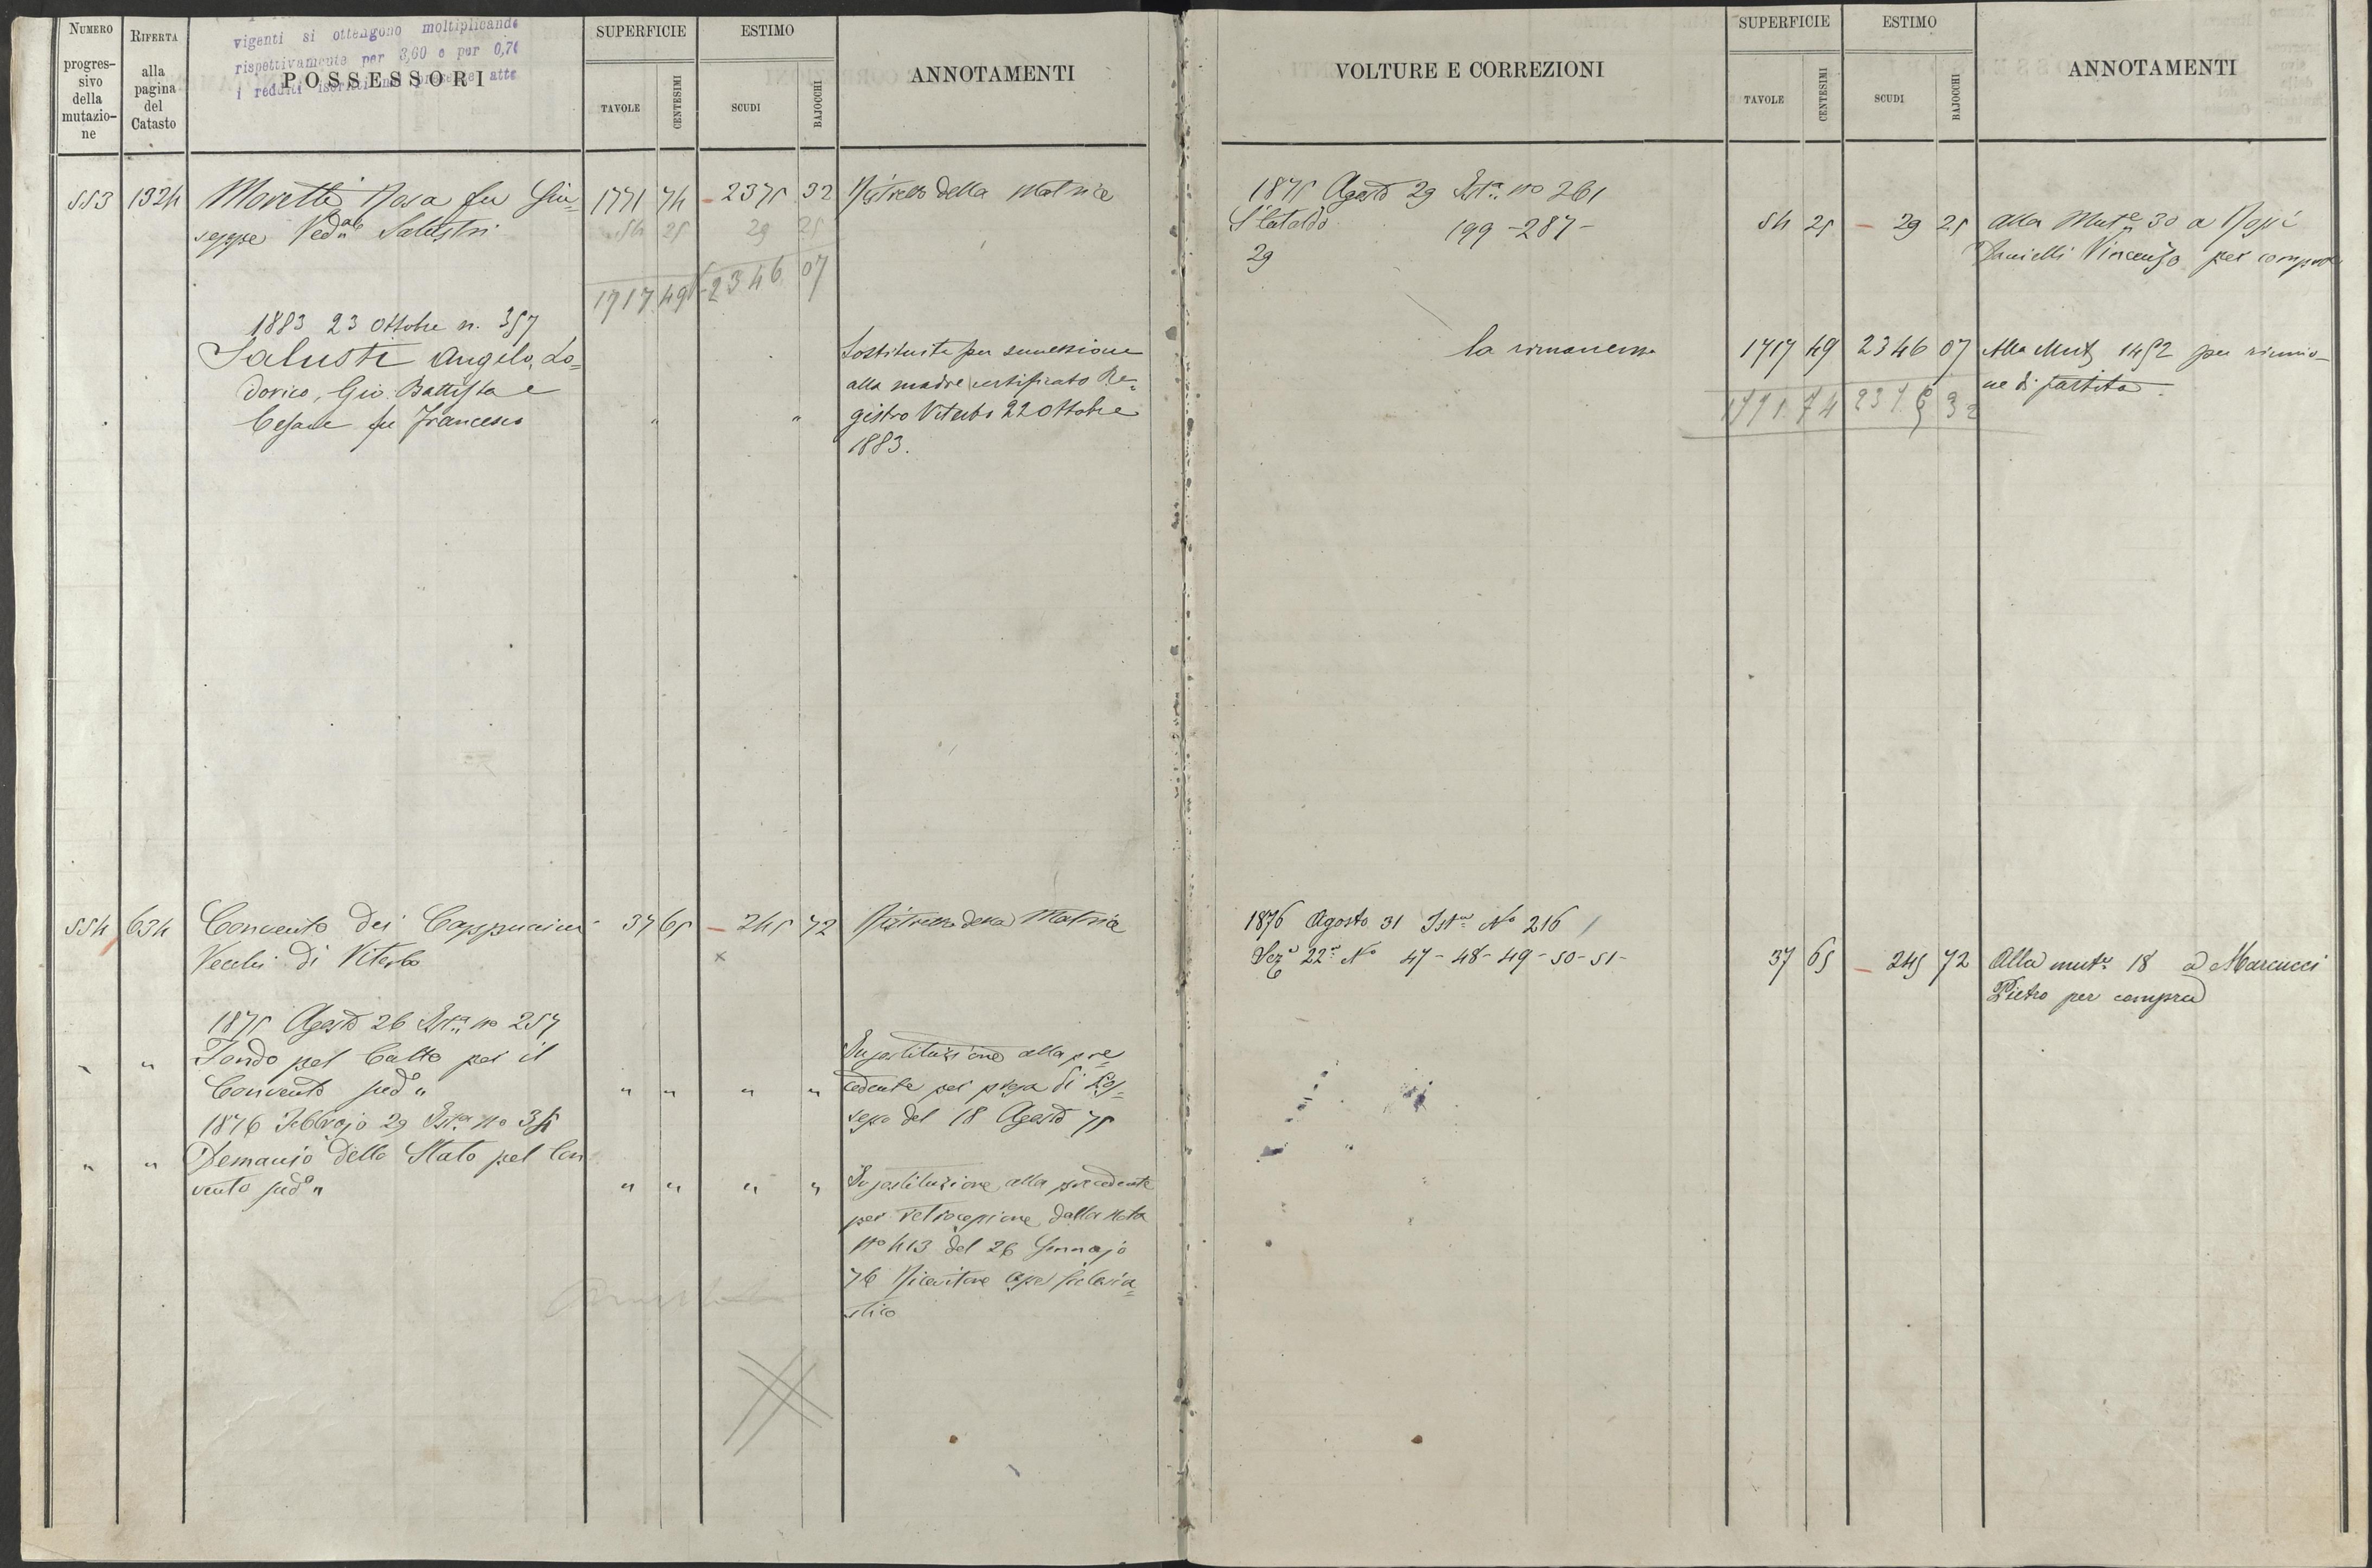 NUMERO progressivo della mutazione
RIFERTA alla pagina del Catasto
vigenti si ottengono moltiplicando
rispettivamente per 3,60 e per 0,70
i redditi iscritti nel presente atto
POSSESSORI
SUPERFICIE
TAVOLE
CENTESIMI
ESTIMO
SCUDI
BAJOCCHI
ANNOTAMENTI
553 132h Moretti Rosa fu Giu= 1771 74 2375 32 Ristretto della Matrice
seppe Ved.ª Salustri 54 25 29 25
1717 49 2346 07
1883 23 Ottobre n. 357
Salusti Angelo, Lo=
dovico, Gio. Battista e
Cesare fu Francesco " "
Sostituite per successione
alla madre certificato Re=
gistro Viterbo 22 Ottobre
1883.
554 634 Convento dei Cappuccini 37 65 245 72 Ristretto della Matrice
Vecchi di Viterbo
1875 Agosto 26 Ist.ª No 257
" " Fondo pel Culto per il
Convento sud.º " " " " "
Sugostituzione alla pre=
cedente per presa di Pos=
sesso del 18 Agosto 75
1876 Febbrajo 29 Ist.ª No 34
" " Demanio dello Stato pel Con
vento sud.º " " " " "
Sugostituzione alla precedente
per retrocessione dalla nota
No 413 del 26 Gennajo
76 Ricevitore
stico
VOLTURE E CORREZIONI
SUPERFICIE
TAVOLE
CENTESIMI
ESTIMO
SCUDI
BAJOCCHI
ANNOTAMENTI
1875 Agosto 29 Ist.ª No 261
S Cataldo 199 - 287 - 54 25 29 25 Alla Mut.e 30 a Rossi
29 Danielli Vincenzo per compra
la rimanenza 1717 49 2346 07 Alla Mut. 1452 per riunio-
ne di partita.
1771.74 2375 32
1876 Agosto 31 Ist.ª No 216
Sez.e 22.ª No 47 - 48 - 49 - 50 - 51 - 37 65 245 72 Alla mut.e 18 a Marcucci
Pietro per compra